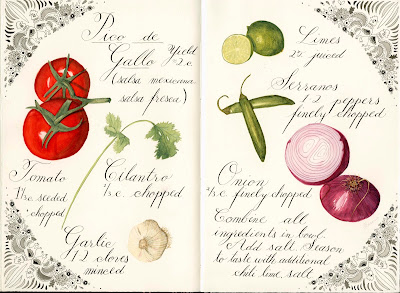 Pico de
Gallo Yield
2 c.
(salsa mexicana
salsa fresca)
Tomato
1 1/2 c. seeded
chopped
Cilantro
1/2 c. chopped
Garlic
1-2 cloves
minced
Limes
2 juiced
Serranos
1-2 peppers
finely chopped
Onion
finely chopped
Combine all
ingredients in bowl.
Add salt. Season
to taste with additional
chili, lime, salt